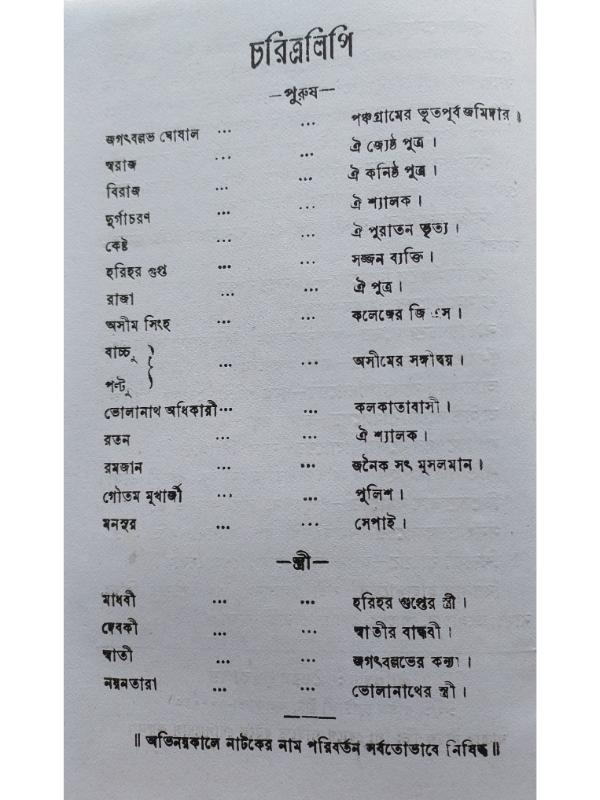 চরিত্রলিপি
—পুরুষ—
জগৎবল্লভ ঘোষাল ... ... পঞ্চগ্রামের ভূতপূর্ব জমিদার ।
স্বরাজ ... ... ঐ জ্যেষ্ঠ পুত্র ।
বিরাজ ... ... ঐ কনিষ্ঠ পুত্র ।
দুর্গাচরণ ... ... ঐ শ্যালক ।
কেষ্ট ... ... ঐ পুরাতন ভৃত্য ।
হরিহর গুপ্ত ... ... সজ্জন ব্যক্তি ।
রাজা ... ... ঐ পুত্র ।
অসীম সিংহ ... ... কলেজের জি এস ।
বাচ্চু
পল্টু } ... ... অসীমের সঙ্গীদ্বয় ।
ভোলানাথ অধিকারী ... ... কলকাতাবাসী ।
রতন ... ... ঐ শ্যালক ।
রমজান ... ... জনৈক সৎ মুসলমান ।
গৌতম মুখার্জী ... ... পুলিশ ।
মনসুর ... ... সেপাই ।
—স্ত্রী—
মাধবী ... ... হরিহর গুপ্তের স্ত্রী ।
দেবকী ... ... স্বাতীর বান্ধবী ।
স্বাতী ... ... জগৎবল্লভের কন্যা ।
নয়নতারা ... ... ভোলানাথের স্ত্রী ।
॥ অভিনয়কালে নাটকের নাম পরিবর্তন সর্বতোভাবে নিষিদ্ধ ॥